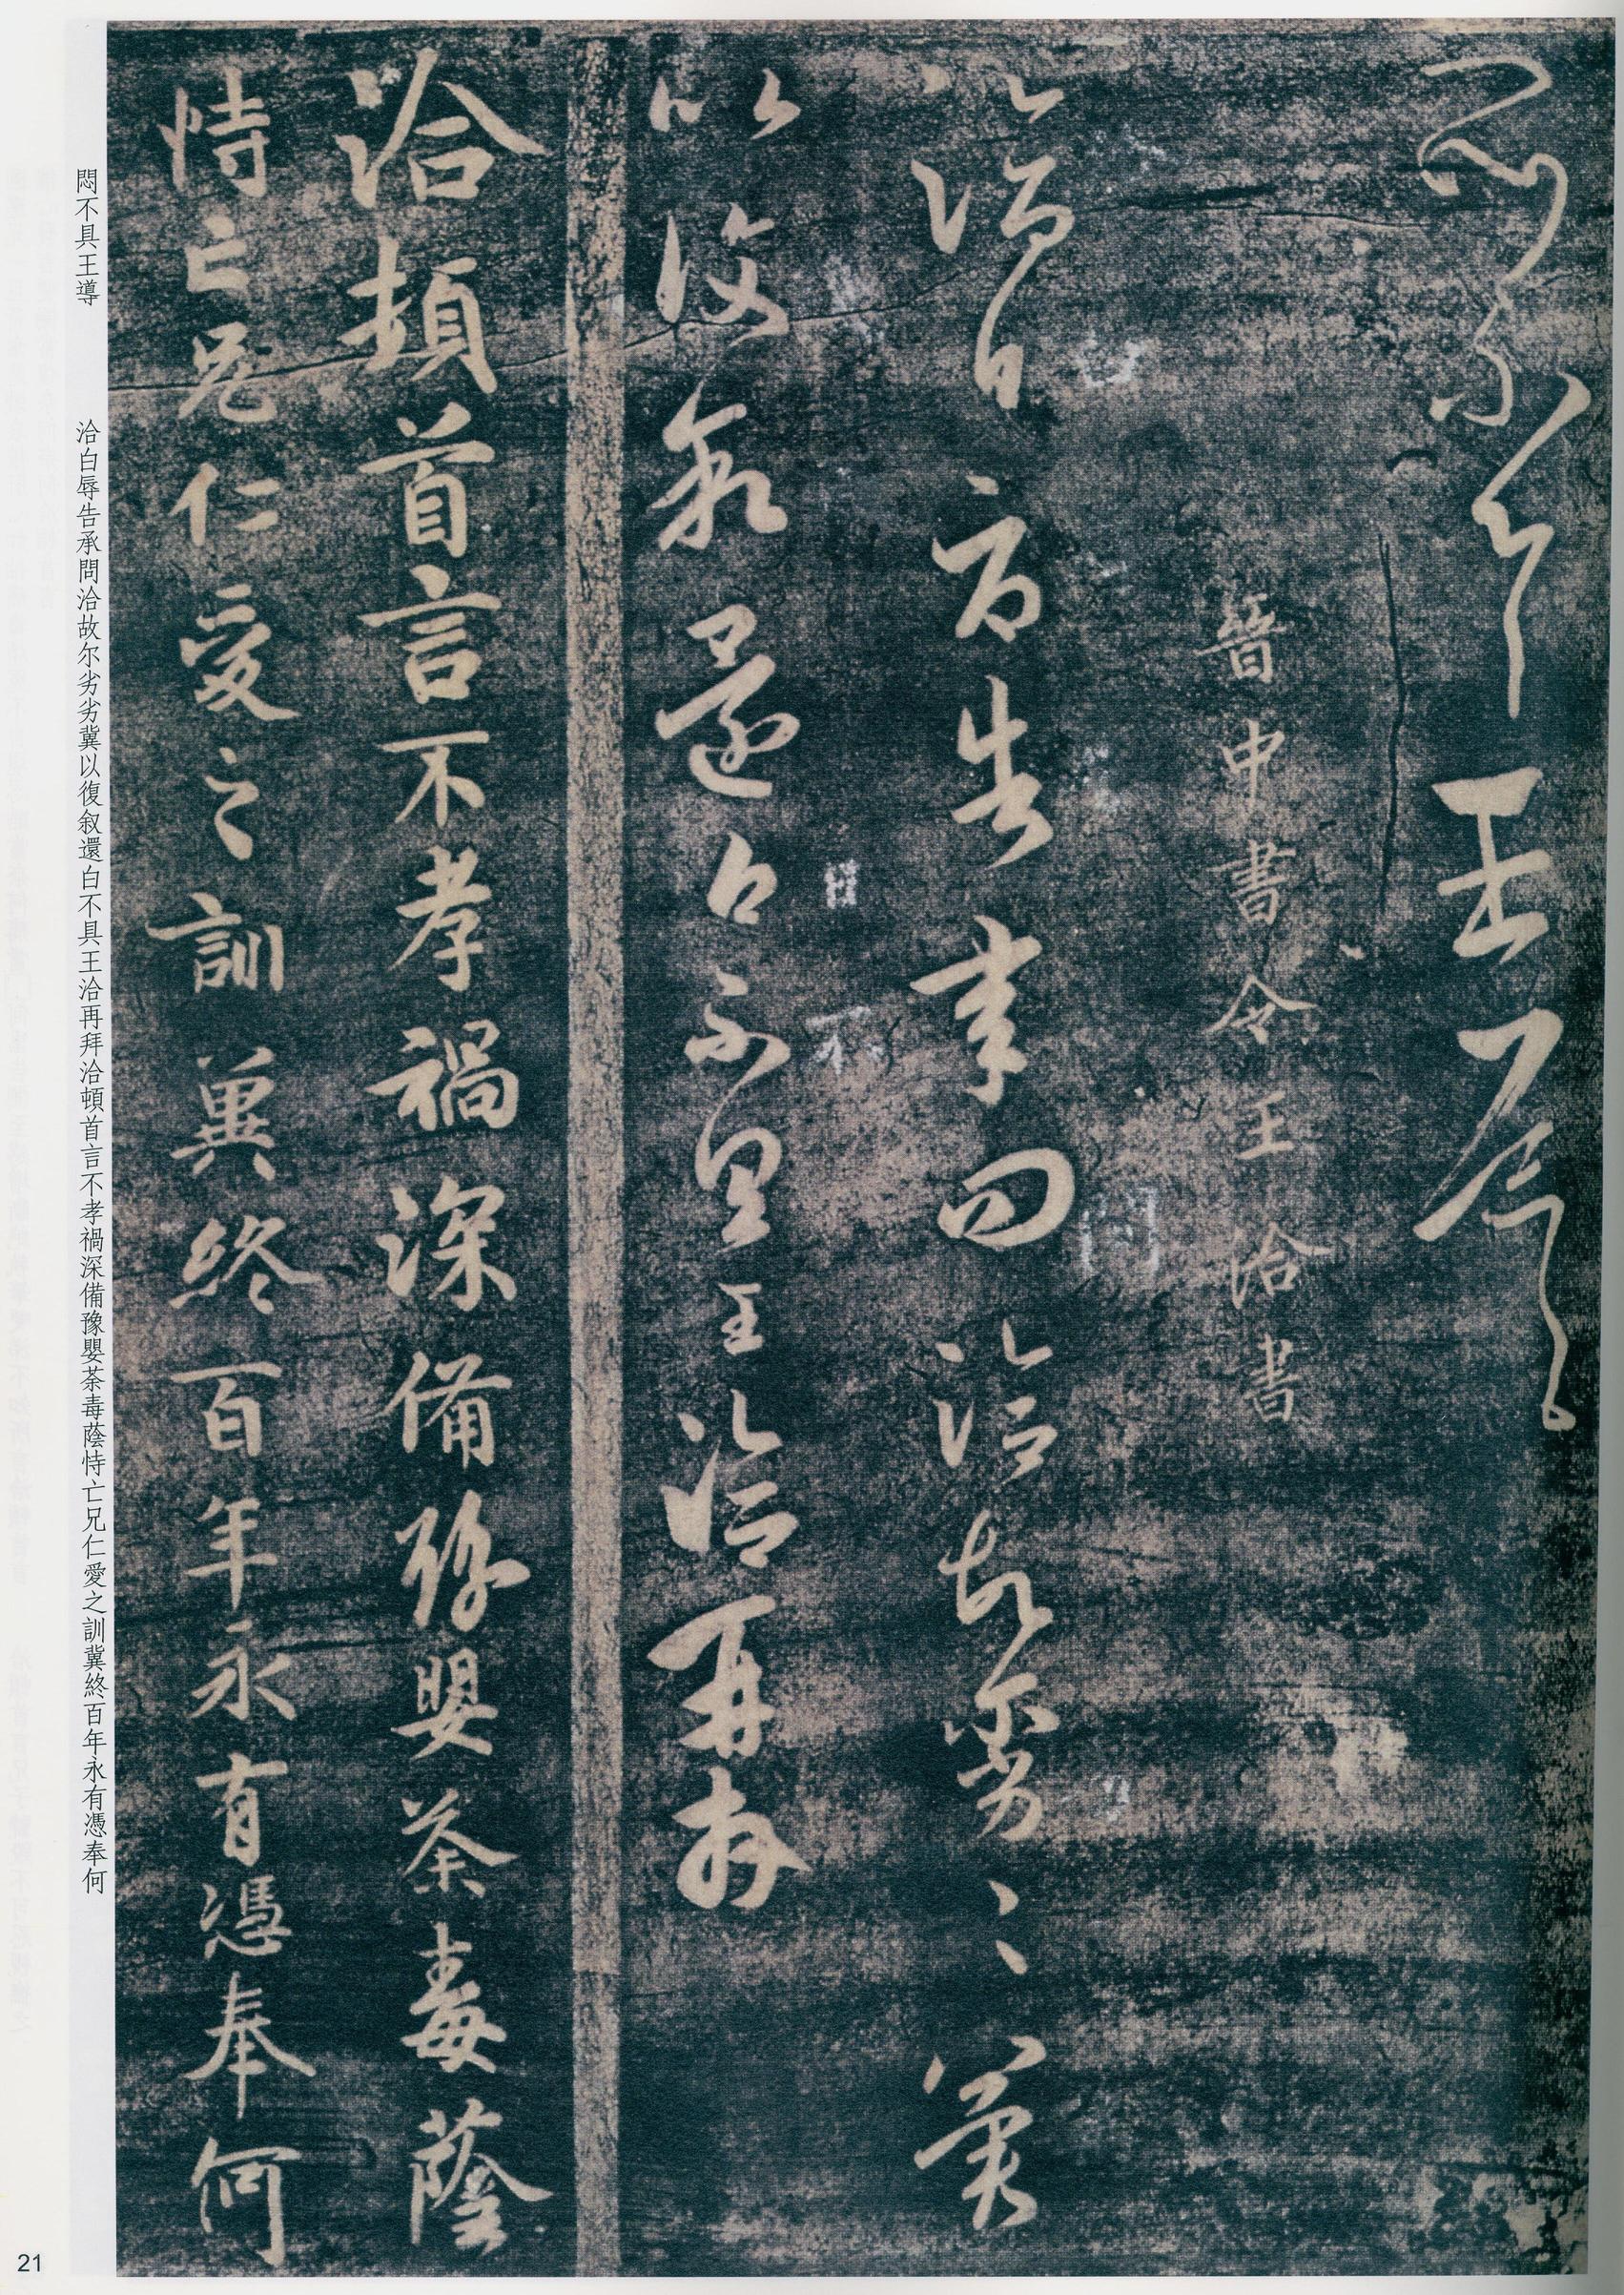 悶不具王導
晉中書令王洽書
洽白辱告承問洽故尔劣劣冀
以復叙還白不具王洽再拜
白
不
問
洽頓首言不孝禍深備豫嬰荼毒蔭
恃亡兄仁愛之訓冀終百年永有憑奉何
悶不具王導
洽白辱告承問洽故尔劣劣冀以復叙還白不具王洽再拜洽頓首言不孝禍深備豫嬰荼毒蔭恃亡兄仁愛之訓冀終百年永有憑奉何
21